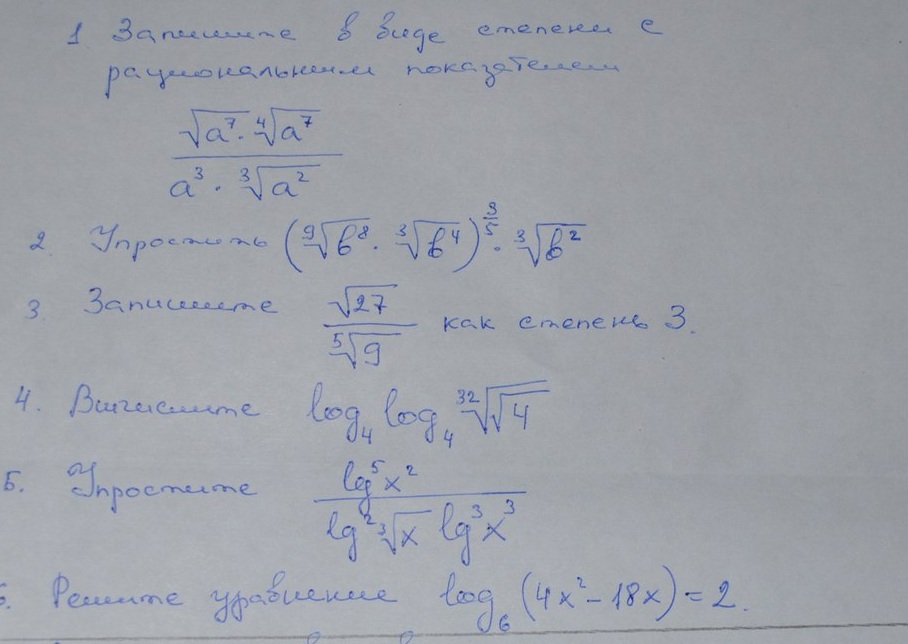 1 Запишите в виде степени с
рациональным показателем
√a⁷ · ⁴√a⁷
a³ · ³√a²
2. Упростить (⁹√b⁸ · ³√b⁴)^(9/5) · ³√b²
3. Запишите √27 / ⁵√9 как степень 3.
4. Вычислите log₄ log₄ ³²√√4
5. Упростите lg⁵x² / lg² ³√x lg³x³
6. Решите уравнение log₆ (4x² - 18x) = 2.